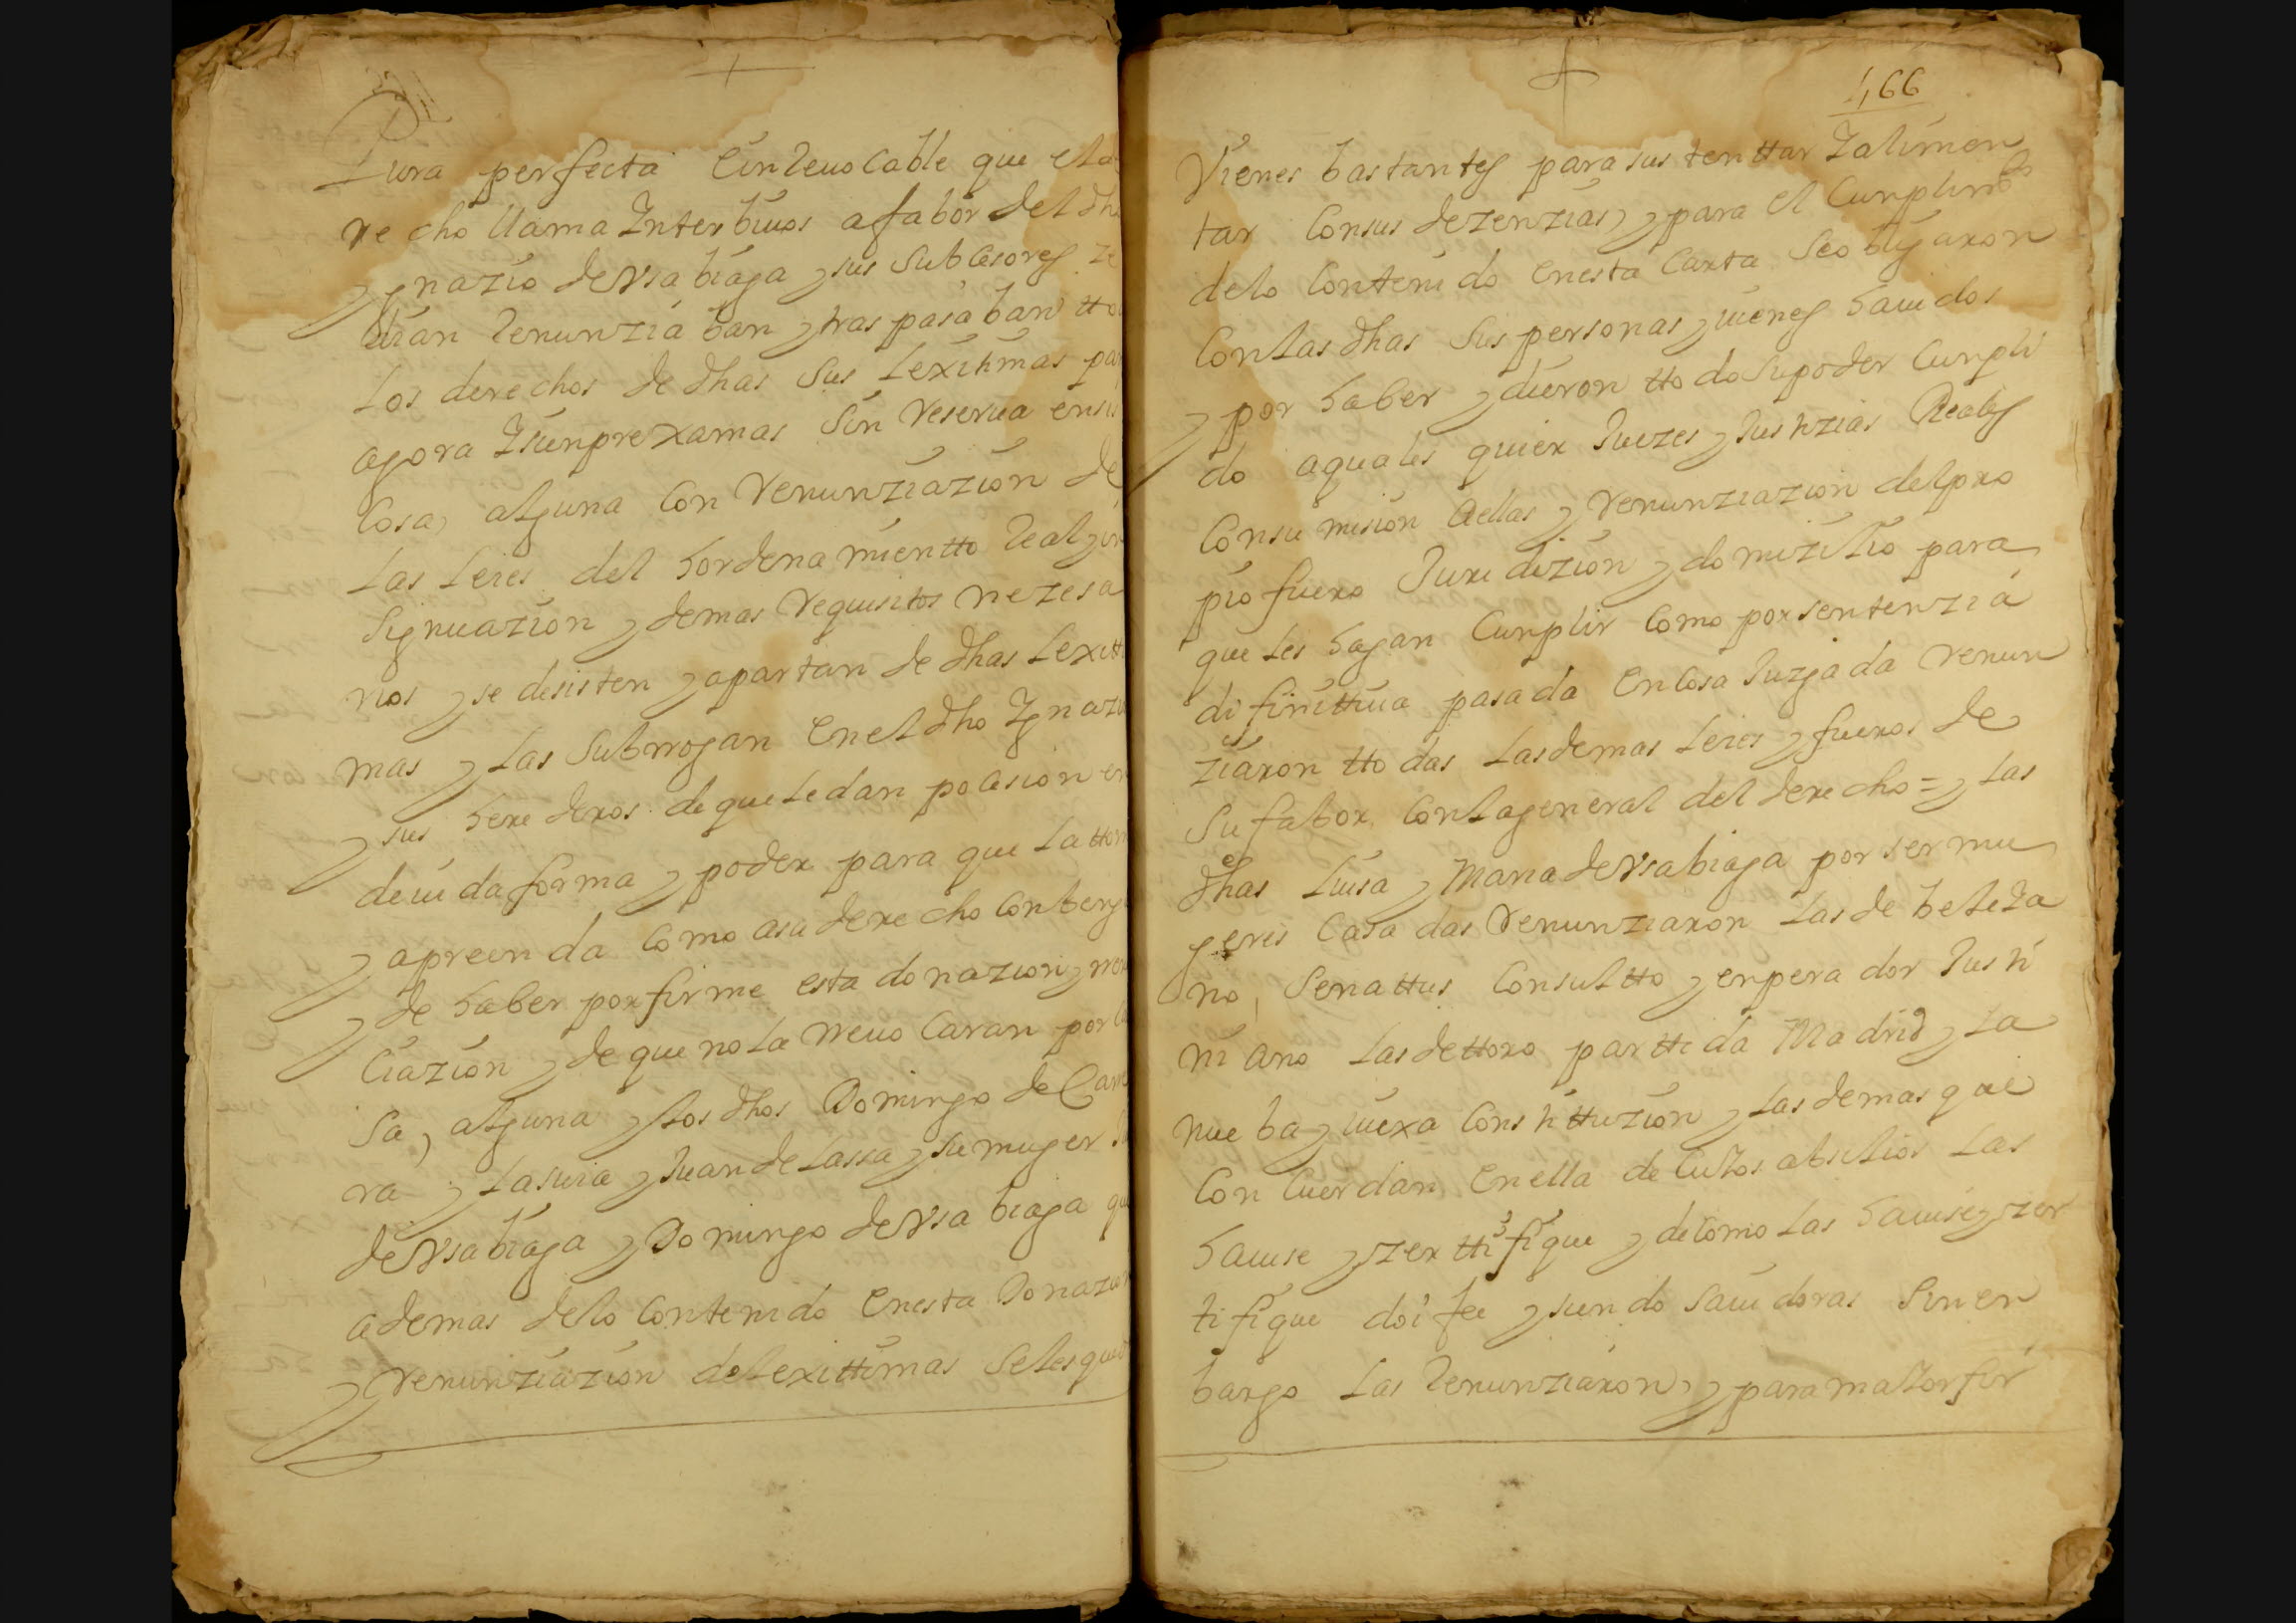 Pura perfecta Einrreuocable que el
re cho llama Interbiuos afabor del dho
ygnazio deVsabiaga y sus subcesores ze
dian Renunziaban y traspasaban tto
Los derechos de dhas sus Lexitimas pa
agora Isienprexamas Sin reserua en
Cosa, alguna Con Renunziazion de
Las Leies del hordenamientto Real y in
Signuazion y demas Requisitos nezesa
rios y se desisten y apartan de dhas Lexitti
mas y Las Subrrogan Enel dho Ygnazio
y sus herederos de que Ledan posesion en
deuida forma y poder para que La ttom
y apreenda Como asu derecho Conbenga
y de haber por firme esta donazion y
Ciazion y de que no La rreuo Caran por Co
Sa, alguna y los dhos Domingo de Cam
ra y Lasuia y Juan de Lassa y su muger
deVsabiaga y Domingo deVsabiaga que
ademas delo Contenido Enesta Donazion
y Renunziazion deLexittimas Seles que
466
Vienes bastantes para sustenttar Ialimen
tar Consus dezenzias, y para el Cunplimto
delo Contenido Enesta Carta Seobligaron
Conlas dhas Sus personas y uienes hauidos
y por haber y dieron ttodo Supoder Cunpli
do aquales quier Juezes y Justizias Reales
Consumision Aellas y Renunziazion delpro
pio fuero Juridizion y domizilio para
que Les hagan Cunplir Como por sentenzia
difinittiua pasada EnCosa Juzgada renun
ziaron ttodas Lasdemas Leies y fueros de
Sufabor Conlageneral del derecho = y Las
dhas Luisa y Maria deVsabiaga por ser mu
geres Casadas Renunziaron Lasde beleIa
no, Senattus Consultto y enperador Justi
niano Lasdettoro parttida Madrid y La
nueba y uiexa Consttittuzion y Lasdemas que
Con Cuerdan Enella de CuIos absilios Las
hauise y zerttifique y deComo Las hauise y zer
tifique doi fee y siendo sauidoras Sinen
bargo Las Renunziaron, y para maIor fir